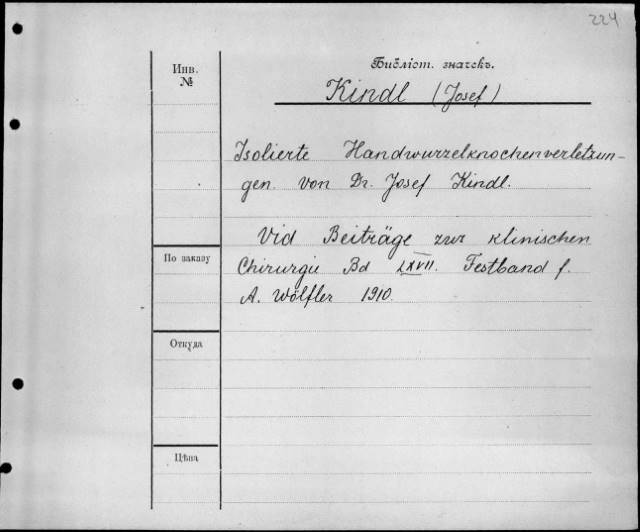 224
Инв.
№
Библіот. значекъ.
Kindl (Josef)
Isolierte Handwurzelknochenverletzun-
gen. von Dr. Josef Kindl.
Vid Beiträge zur klinischen
По заказу
Chirurgie Bd LXVII. Festband f.
A. Wölfler 1910.
Откуда
Цѣна